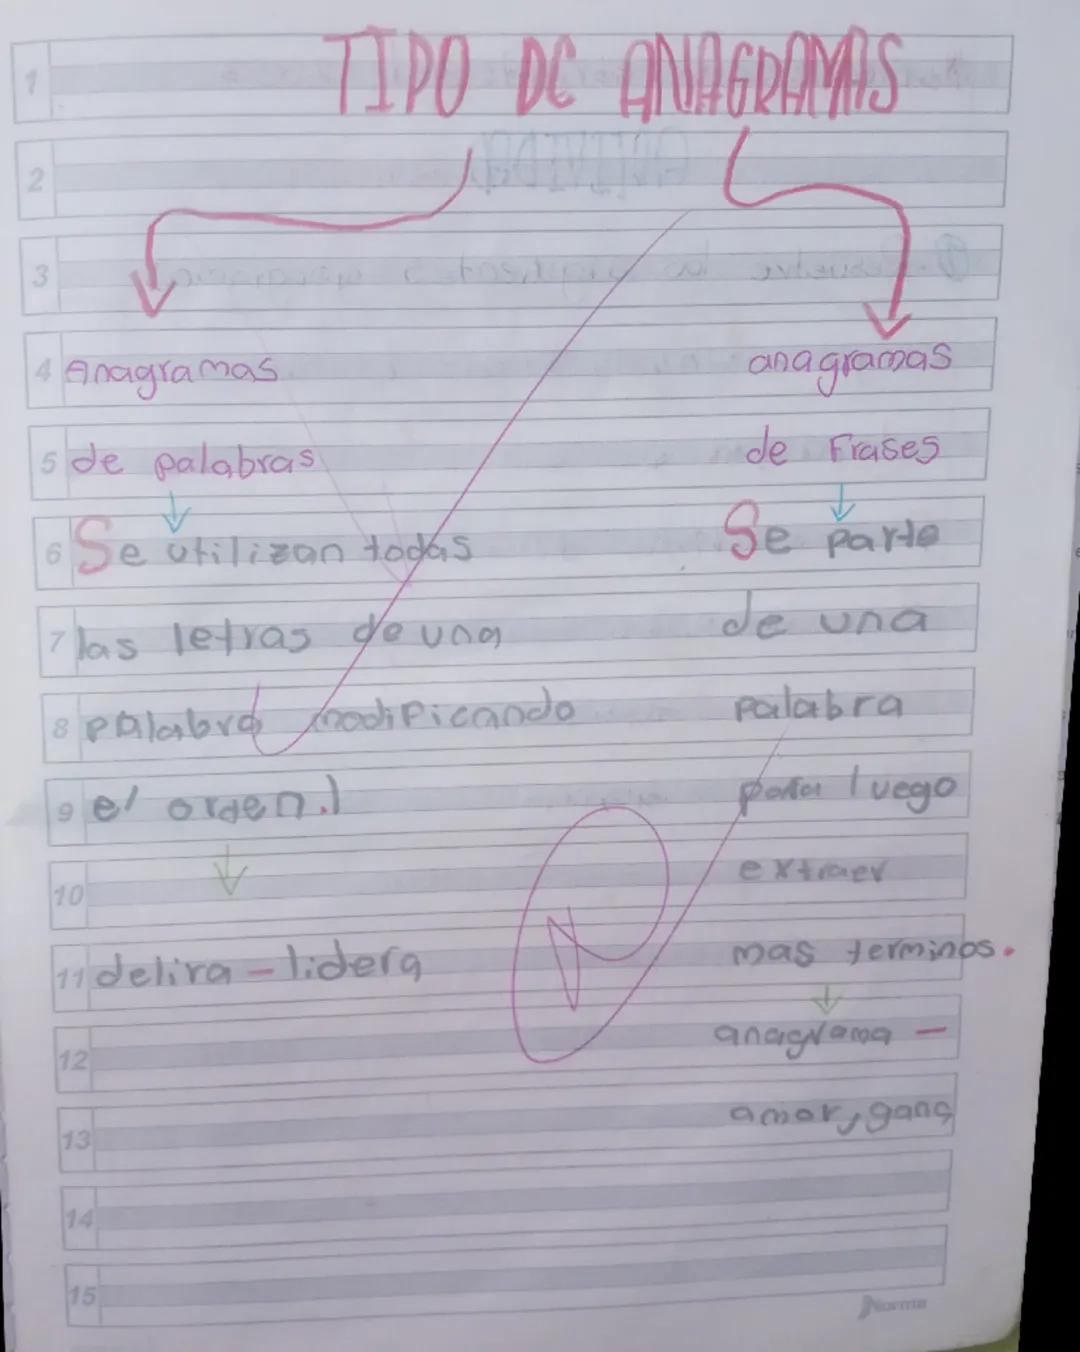 TIPO DE ANAGRAMAS
Anagramas
de palabras
Se utilizan todas
las letras de una
palabra modificando
el orden.
delira - lidera
anagramas
de Frases
Se parte
de una
palabra
para luego
extraer
mas terminos.
anagrama -
amor, gana
1
2
3
4
5
6
7
8
9
10
11
12
13
14
15
Norma